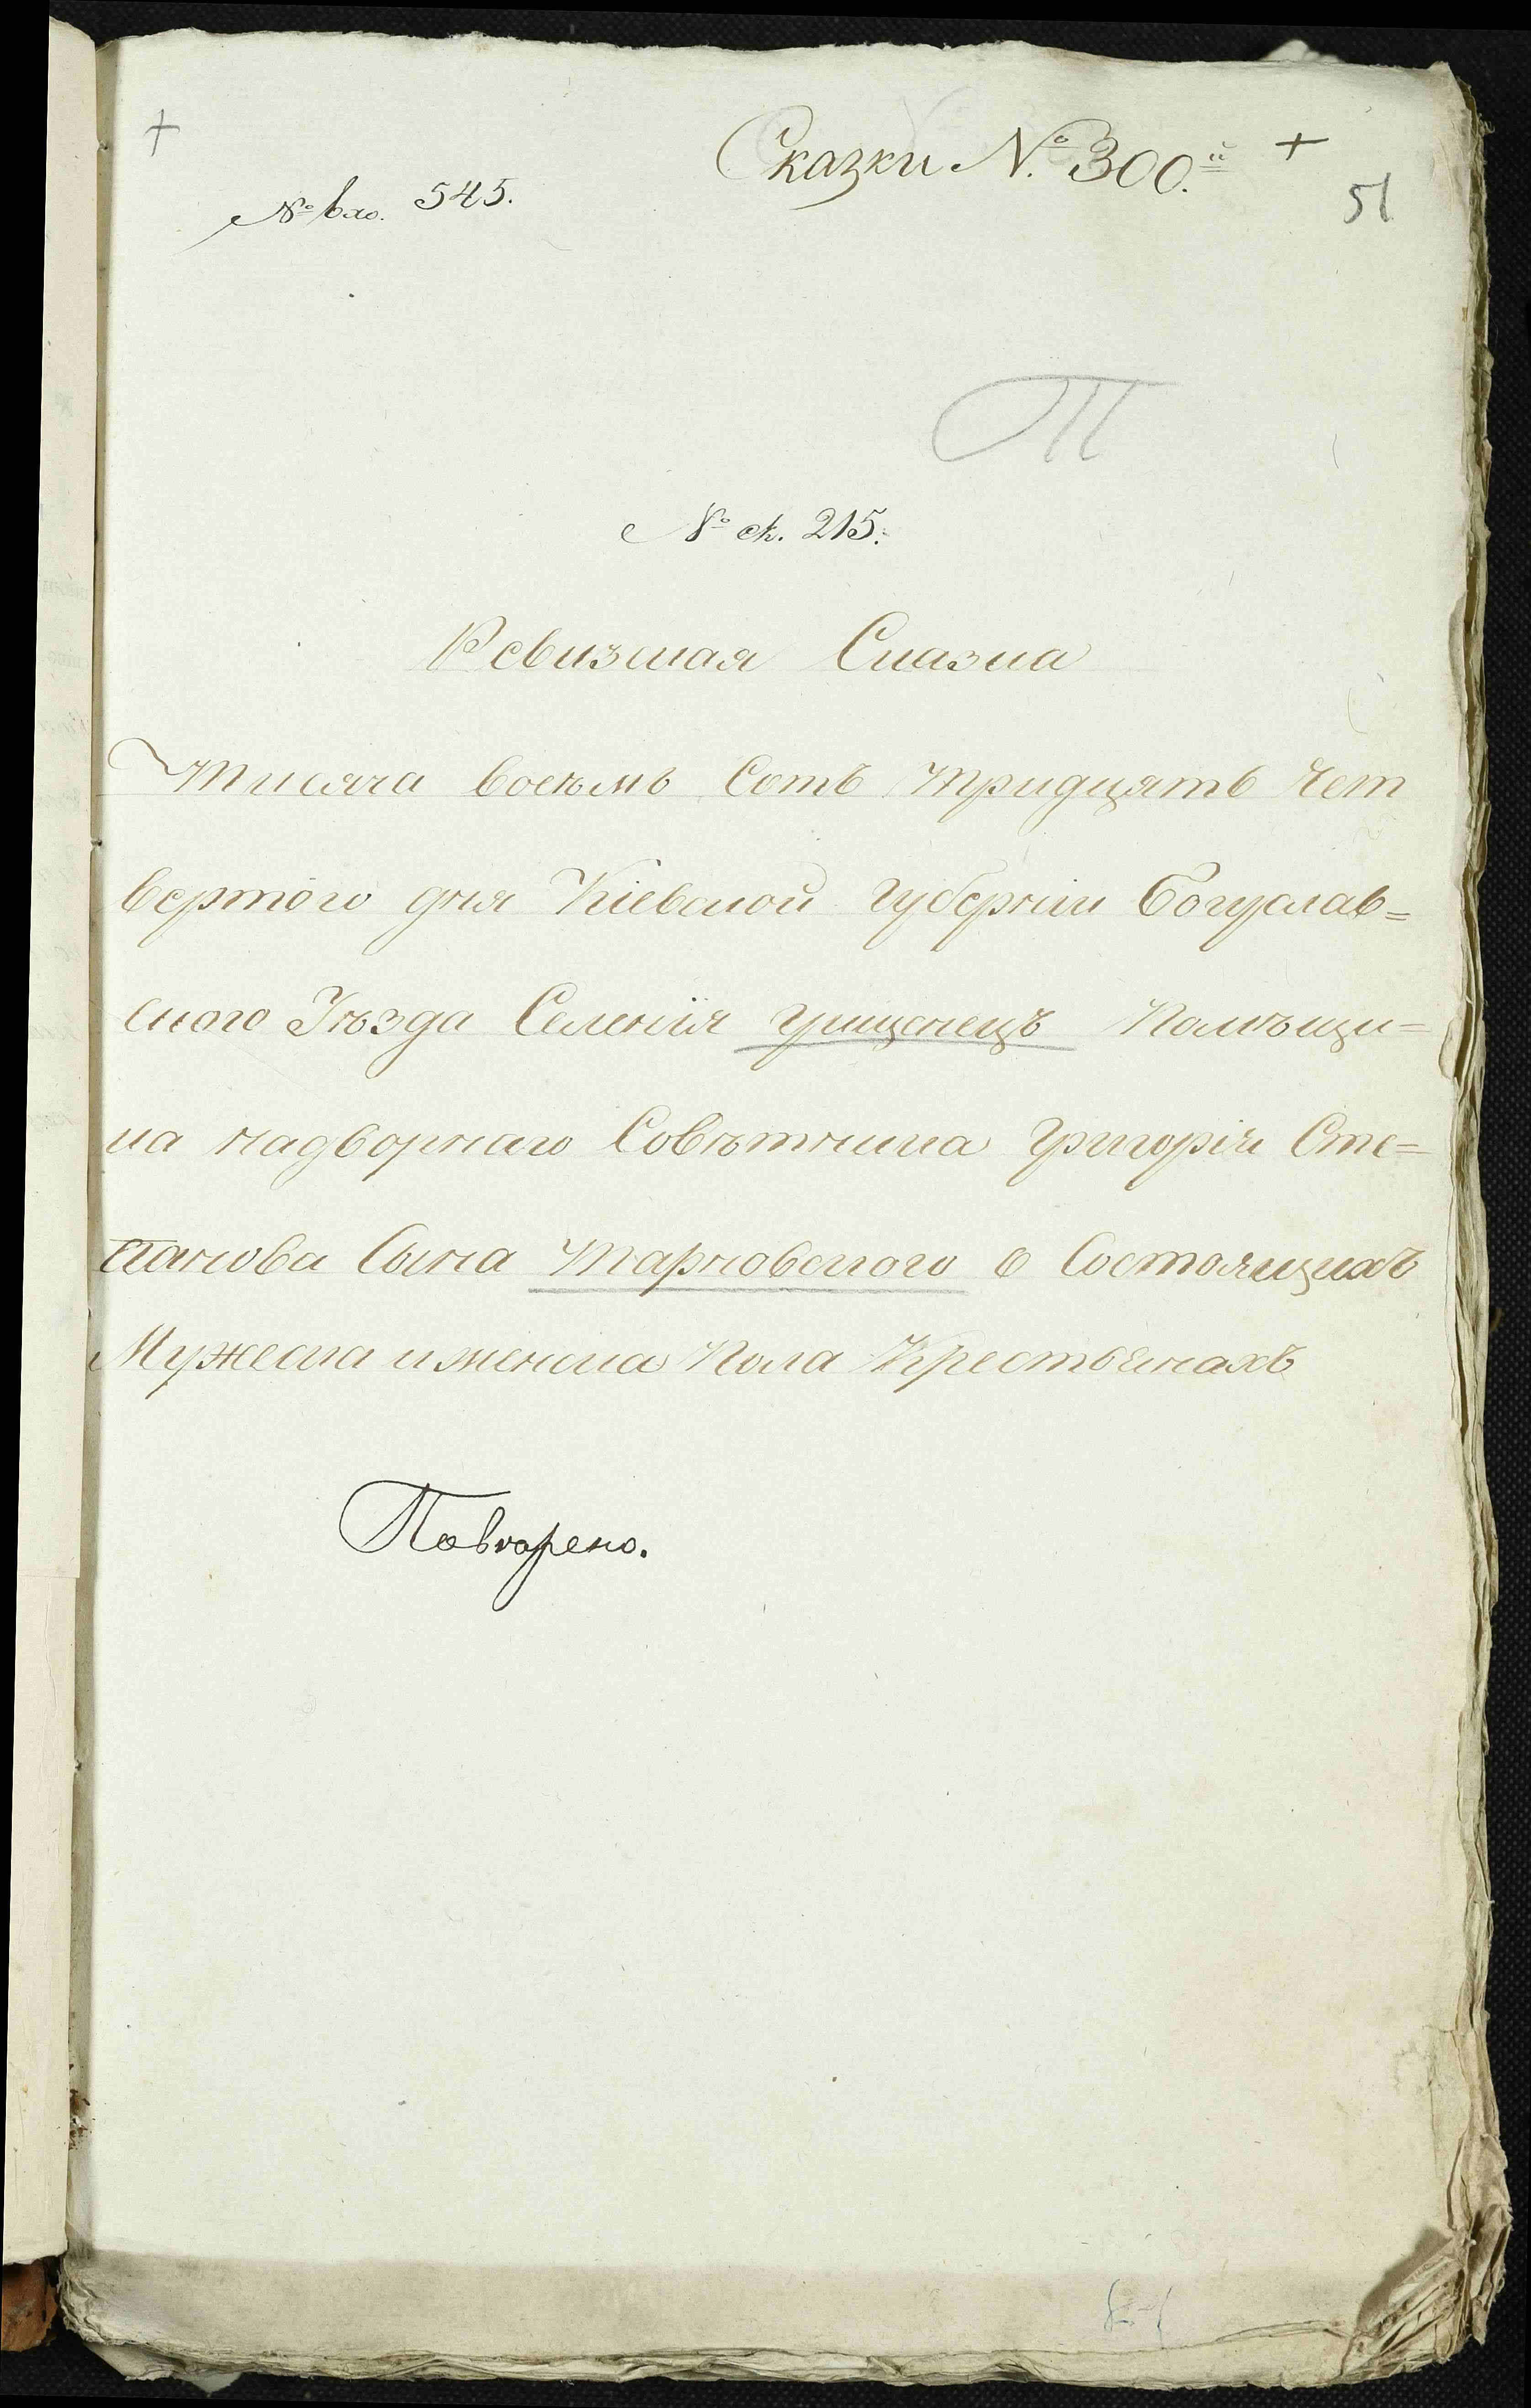 Сказки №. 300.й
51
№ вхо. 545.
Т
№ ск. 215.
Ревизкая Сказка
Тисяча восемь Сотъ тридцять чет
вертого дня Кіевской губерніи Богуслав=
ского Уѣзда Селенія грищенецъ Помѣщи=
ка надворнаго Совѣтника Григорія Сте=
панова Сына Тарновского о Состоящихъ
Мужеска и женска Пола Крестьянахъ
Повторено.